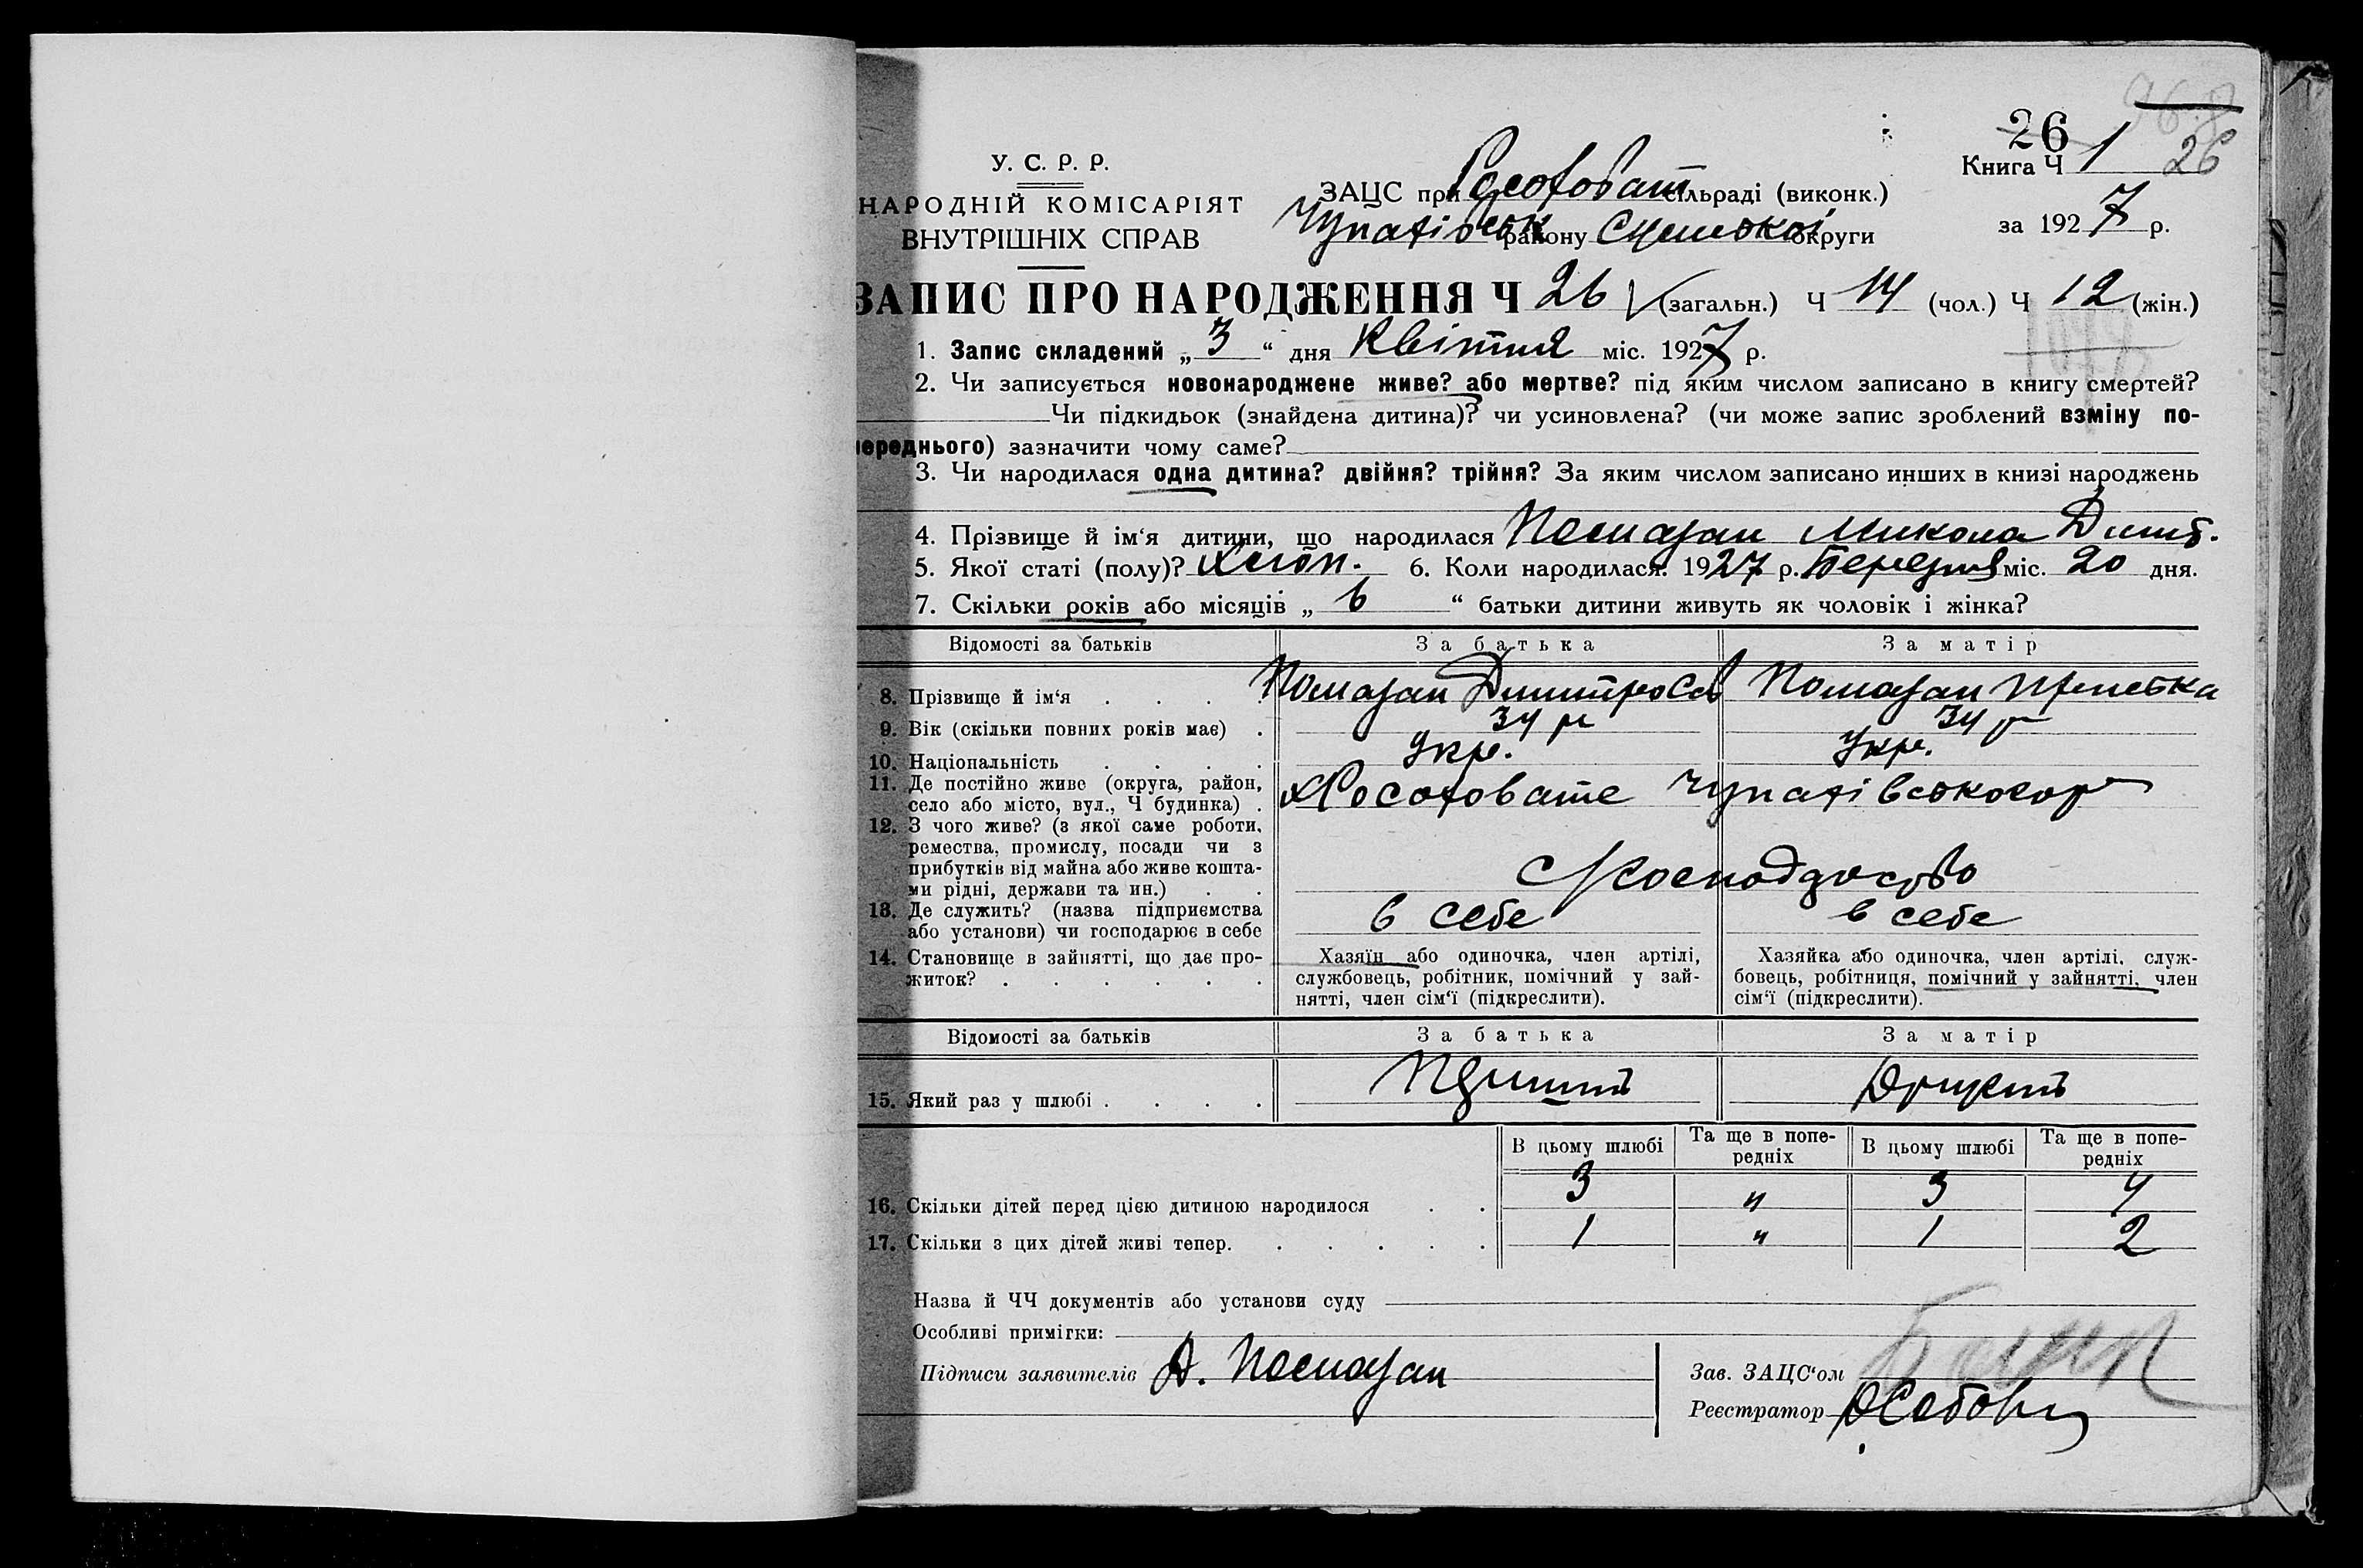 26
26
У. С. Р. Р.
НАРОДНІЙ КОМІСАРІЯТ
ВНУТРІШНІХ СПРАВ
Книга Ч 1
ЗАЦС при сільраді (виконк.)
району Сумської округи
за 1927 р.
ЗАПИС ПРО НАРОДЖЕННЯ Ч 26 (загальн.) Ч 14 (чол.) Ч 12 (жін.)
1. Запис складений „ 3 “ дня Квітня міс. 1927 р.
2. Чи записується новонароджене живе? або мертве? під яким числом записано в книгу смертей?
Чи підкидьок (знайдена дитина)? чи усиновлена? (чи може запис зроблений взміну по-
переднього) зазначити чому саме?
3. Чи народилася одна дитина? двійня? трійня? За яким числом записано инших в книзі народжень
4. Прізвище й ім‘я дитини, що народилася Помазан Микола Дмит.
5. Якої статі (полу)? Хлоп. 6. Коли народилася: 1927 р. Березня міс. 20 дня.
7. Скільки років або місяців „ 6 “ батьки дитини живуть як чоловік і жінка?
Відомості за батьків За батька За матір
8. Прізвище й ім‘я Помазан Помазан
9. Вік (скільки повних років має) 34 р 34 р
10. Національність Укр. Укр.
11. Де постійно живе (округа, район,
село або місто, вул., Ч будинка)
12. З чого живе? (з якої саме роботи,
ремества, промислу, посади чи з
прибутків від майна або живе кошта-
ми рідні, держави та ин.)
13. Де служить? (назва підприємства
або установи) чи господарює в себе в себе в себе
14. Становище в зайнятті, що дає про-
житок?
Хазяїн або одиночка, член артілі,
службовець, робітник, помічний у зай-
нятті, член сім‘ї (підкреслити).
Хазяйка або одиночка, член артілі, служ-
бовець, робітниця, помічний у зайнятті, член
сім‘ї (підкреслити).
Відомості за батьків За батька За матір
15. Який раз у шлюбі
В цьому шлюбі Та ще в попе-
редніх В цьому шлюбі Та ще в попе-
редніх
16. Скільки дітей перед цією дитиною народилося 3 " 3 4
17. Скільки з цих дітей живі тепер. 1 " 1 2
Назва й ЧЧ документів або установи суду
Особливі примітки:
Підписи заявителів Д. Помазан
Зав. ЗАЦС‘ом
Реєстратор